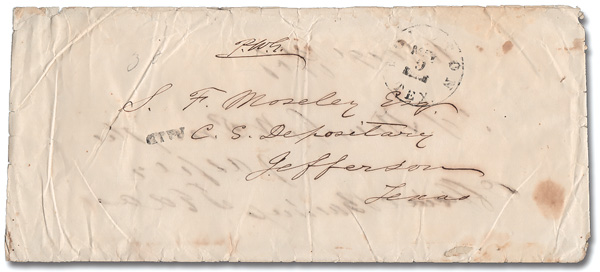 P.W.G.
9
TEX
S. F. Moseley Esq.
PAID
C. S. Depositary
Jefferson
Texas